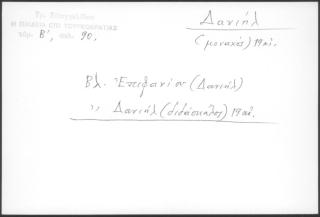 Τρ. Ευαγγελίδου
Η ΠΑΙΔΕΙΑ ΕΠΙ ΤΟΥΡΚΟΚΡΑΤΙΑΣ
τόμ. Β', σελ. 90.
Δανιήλ
(μοναχός) 19 αἰ.
Βλ. Ἐπιφάνιος (Δανιήλ)
" Δανιήλ (διδάσκαλος) 19 αἰ.